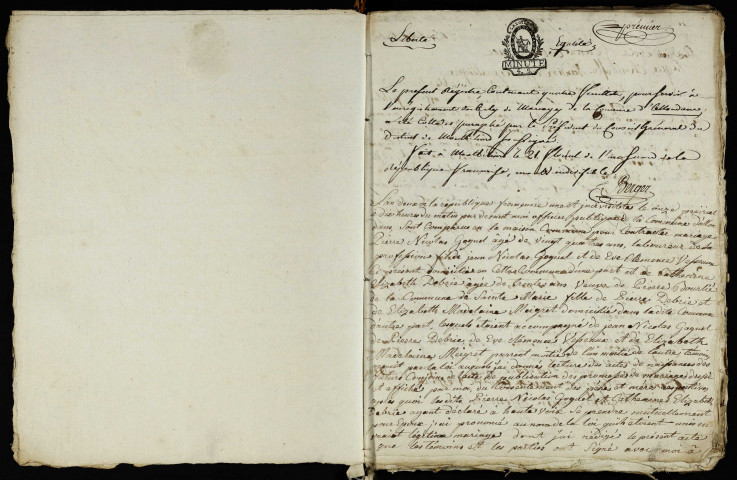 Liberté Egalité premier
MINUTE
Le présent Régistre, Contenant quatre feuillets, pour servir à
l'enregistrement des Actes de Mariage de la Commune d'
a été Cotté et paraphé par le Président du Conseil Général du
District de
fait à le 21 floreal de l'an second de la
République française, une et indivisible
Berger
L'an deux de la république française une et indivisible le prairial
à dix heures du matin par devant moi officier publique de la Commune
sont Comparus en la maison Commune pour Contracter mariage
Pierre Nicolas Goguel âgé de vingt quatre ans, laboureur de sa
profession fils de jean Nicolas Goguel et de Eve Clemence
le présent domicilié en Cette Commune d'une part et de Catherine
Elizabeth Debrie agée de trente ans Veuve de Pierre
de la Commune de Sainte Marie fille de Pierre Debrie et
de Elizabeth Madelaine Meigret domiciliée dans la dite Commune
d'autre part, lesquels étoient accompagné de jean Nicolas Goguel
de Pierre Debrie de Eve Clemence et de Elizabeth
Madelaine Meigret
par la loi auquels j'ai donnés lecture des actes de naissances des
publication des promesses de mariages
et affiché par moi, du Consentement des pères et mères respectives
après quoi les dits Pierre Nicolas Goguel et Catherine Elizabeth
Debrie ayant déclaré à haute voix se prendre mutuellement
pour Epoux j'ai prononcé au nom de la loi qu'ils étoient unis en
vrai et légitime mariage dont j'ai rédigé le présent acte
que les témoins et les parties ont signé avec moi à